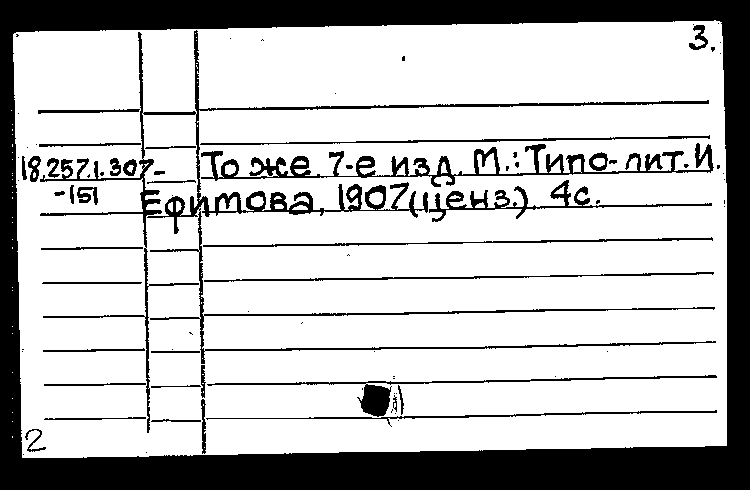 3.
18.257.1.307- То же. 7-е изд. М.: Типо-лит. И.
-151 Ефимова, 1907(ценз.). 4с.
2